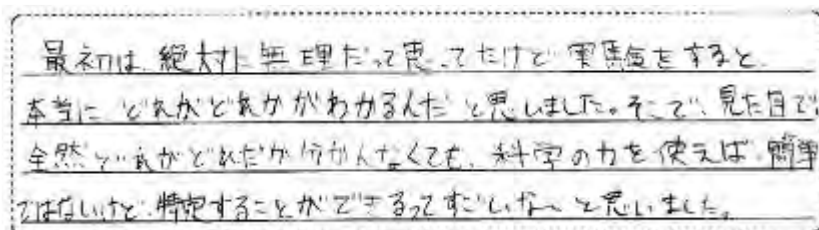 最初は、絶対に無理だって思ってたけど実験をすると、
本当に どれがどれかがわかるんだ と思いました。そこで、見た目で
全然どれがどれだか分かんなくても、科学の力を使えば、簡単
ではないけど、特定することができるってすごいな〜と思いました。